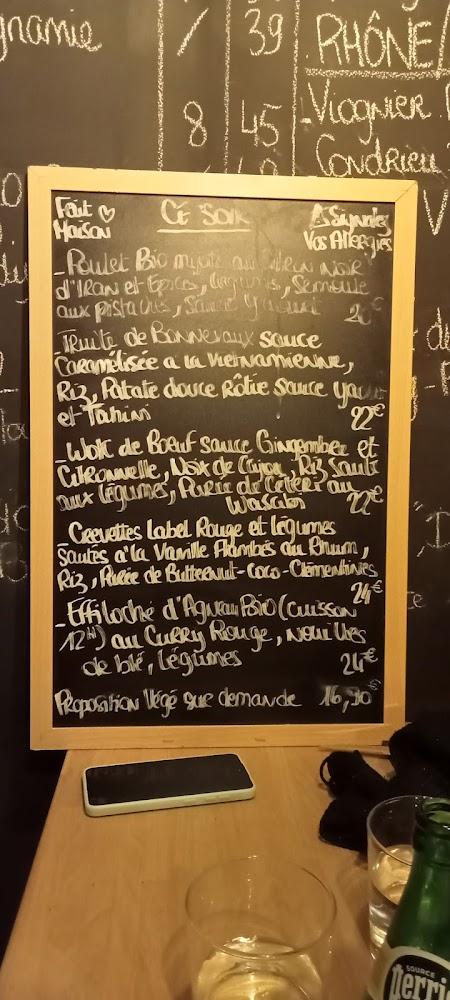 gnamie / 39 RHÔNE/
8 45 Viognier
Condrieu
Fait ♡ Maison
Ce Soir
⚠ Signalez Vos Allergies
- Poulet Bio au Citron Noir
d'Iran et Epices, Légumes, Semoule
aux pistaches, Sauce Yaourt 20€
- Truite de Bonnevaux sauce
Caramélisée a la Vietnamienne,
Riz, Patate douce rôtie sauce yaourt
et Tahini 22€
- Wok de Boeuf sauce Gingembre et
Citronnelle, Noix de Cajou, Riz Sauté
aux légumes, Purée de Céleri au
Wasabi 22€
- Crevettes Label Rouge et légumes
Sautés a la Vanille Flambés au Rhum,
Riz, Purée de Butternut-Coco-Clémentines
24€
- Effiloché d'Agneau Bio (cuisson
12H) au Curry Rouge, nouilles
de blé, légumes 24€
Proposition Végé sur demande 16,90€
SOURCE
Perrie